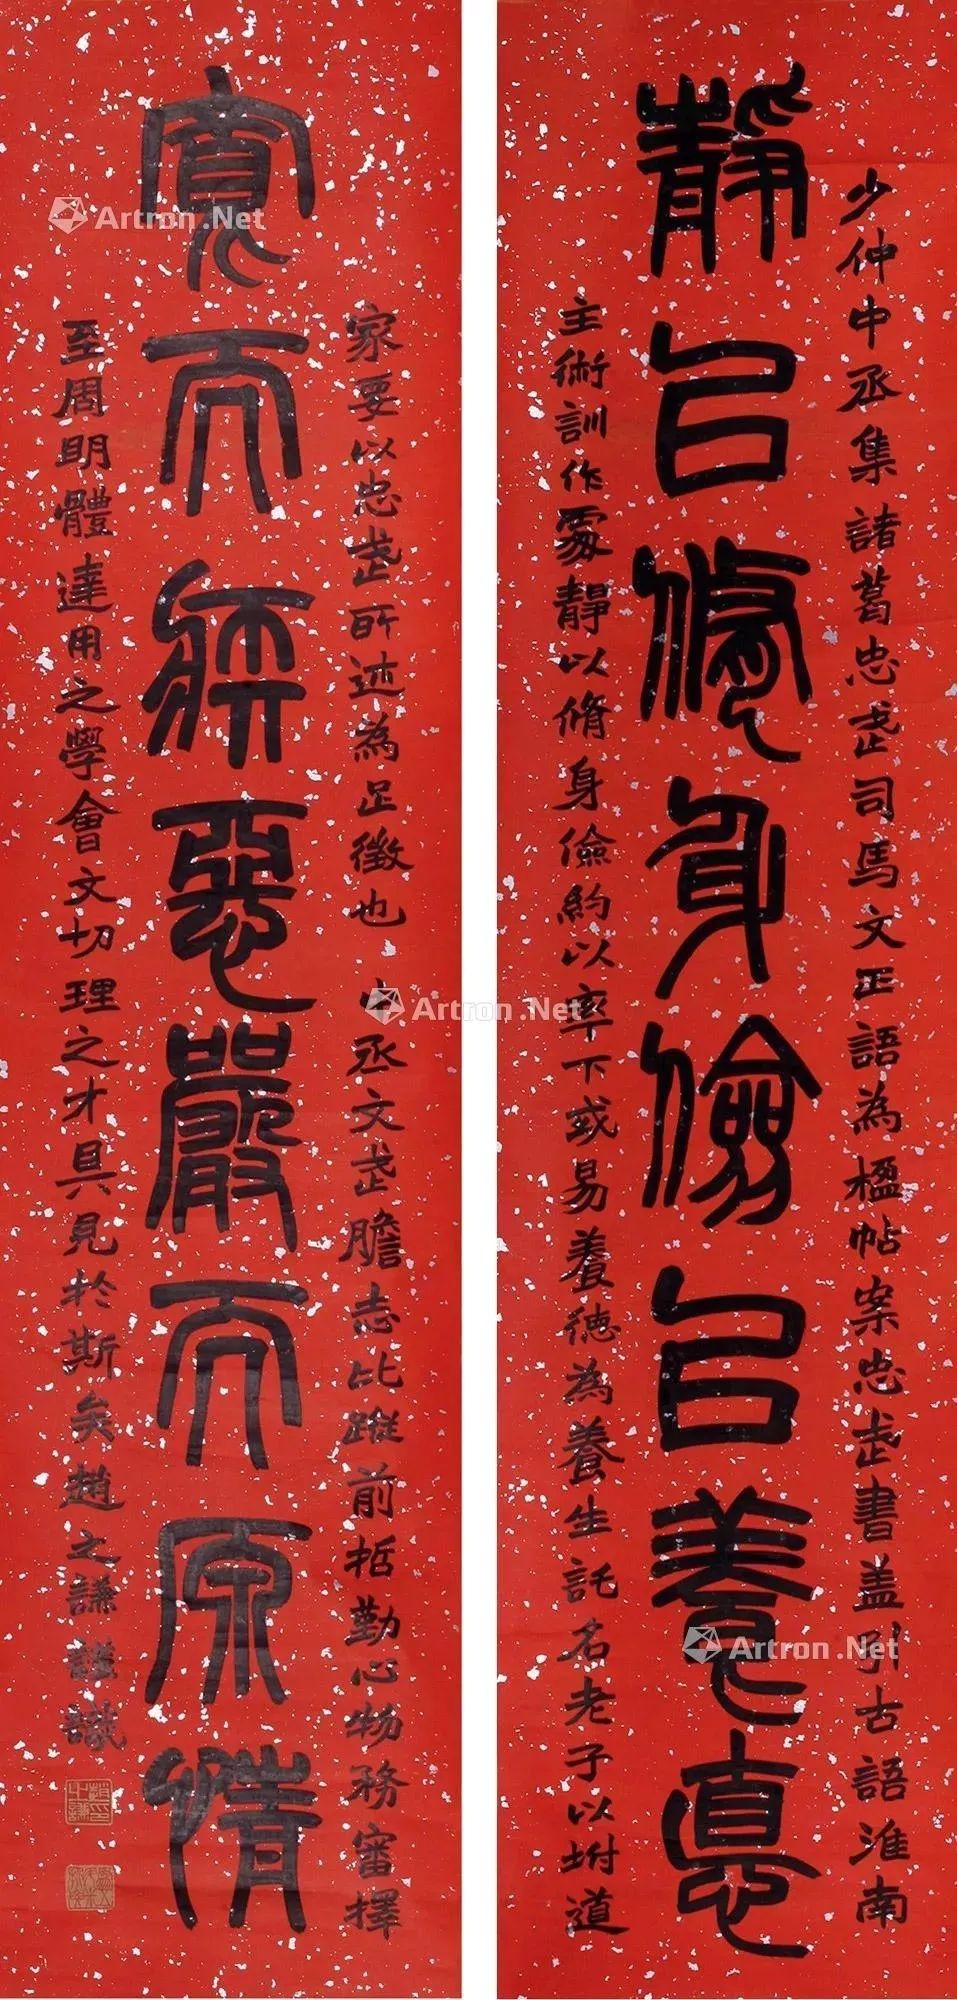 少仲中丞集諸葛忠武司馬文正語為楹帖案忠武書蓋引古語淮南
靜㠯脩身儉㠯養悳
主術訓作處靜以脩身儉約以率下或易養德為養生託名老子以坿道
家要以忠武所述為足徵也 中丞文武膽志比蹤前哲勤心物務審擇
寬而疾惡嚴而原情
至周明體達用之學會文切理之才具見於斯矣趙之謙謹識
Artron.Net
Artron.Net
Artron.Net